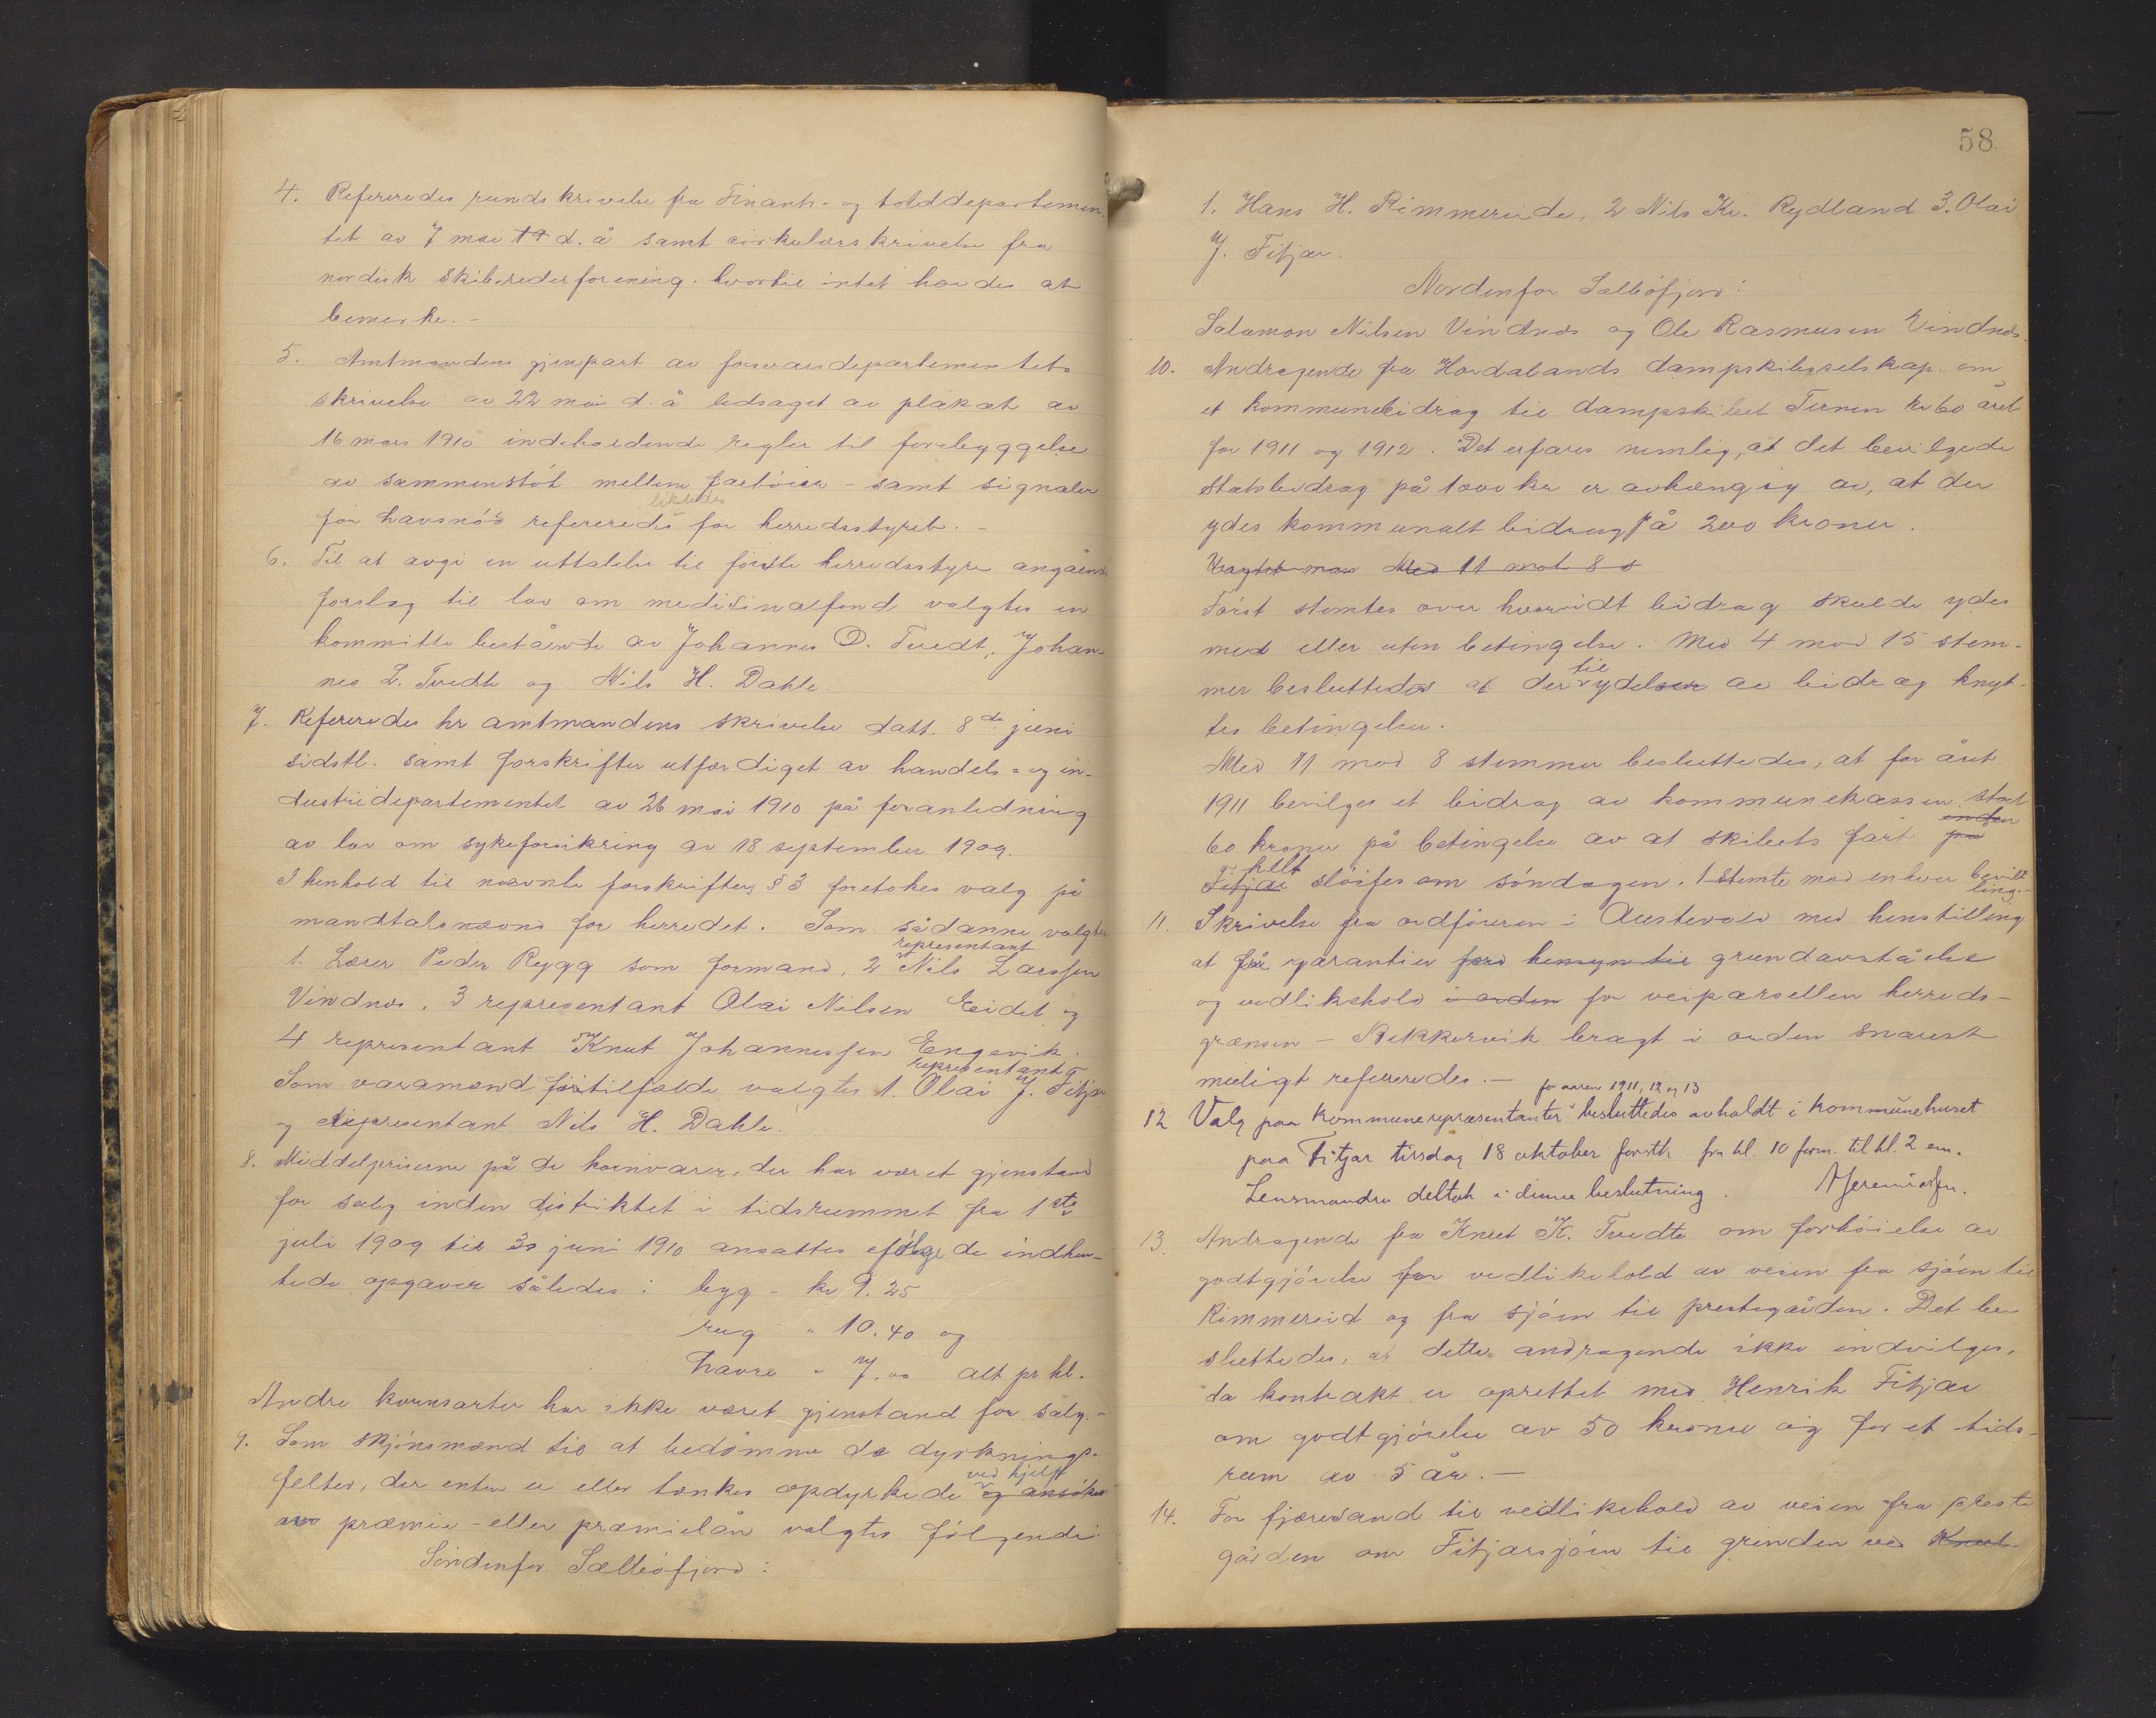 4. Refereredes rundskrivelse fra Finants- og tolddepartemen-
tet av 7 mai d. å samt cirkulærskrivelse fra
nordisk skibsrederforening. hvortil intet havdes at
bemerke. -
5. Amtmandens gjenpart av forsvarsdepartementets
skrivelse av 22 mai d. å ledsaget av plakat av
16 mars 1910 indeholdende regler til forebyggelse
av sammenstöt mellem fartöier - samt signaler
likeledes
for havsnöd refereredes for herredsstyret. -
6. Til at avgi en uttalelse til förste herredsstyre angående
forslag til lov om medisinalfond valgtes en
kommitte bestående av Johannes O. Tvedt, Johan-
nes L. Tvedt og Nils H. Dahle.
7. Refereredes hr amtmandens skrivelse datt. 8de juni
sidstl. samt forskrifter utfærdiget av handels- og in-
dustridepartementet av 26 mai 1910 på foranledning
av lov om sykeforsikring av 18 september 1909.
I henhold til nævnte forskrifters § 3 foretokes valg på
mandtalsnævnd for herredet. Som sådanne valgtes
representant
1. Lærer Peder Rygg som formand, 2 Nils Larssen
Vindnes, 3 representant Olai Nilsen Eidet og
4 representant Knut Johannessen Engevik.
representant
Som varamænd för tilfælde valgtes 1. Olai J. Fitjar
og representant Nils H. Dahle.
8. Middelpriserne på de kornvarer, der har været gjenstand
for salg inden distriktet i tidsrummet fra 1ste
juli 1909 til 30 juni 1910 ansattes efölge de indhen-
tede opgaver således: byg - kr 9.25
rug " 10.40 og
havre " 7.00 alt pr hl.
Andre kornsorter har ikke været gjenstand for salg. -
9. Som skjönsmænd til at bedömme de dyrknings-
ved hjelp
felter, der enten er eller tænkes opdyrkede og ansökes
av præmie- eller præmielån valgtes fölgende:
Söndenfor Sælleöfjord:
58.
1. Hans H. Rimmereide, 2 Nils Kr. Rydland 3. Olai
J. Fitjar.
Nordenfor Sælleöfjord:
Salamon Nilsen Vindnes og Ole Rasmusen Vindnes.
10. Andragende fra Hordalands dampskibsselskap om
et kommunebidrag til dampskibet Ternen kr 60 året
for 1911 og 1912. Det erfares nemlig, at det bevilgede
statsbidrag på 1000 kr er avhængig av, at der
ydes kommunalt bidrag på 200 kroner.
Vragtet man Med 11 mot 8 s
Först stemtes over hvorvidt bidrag skulde ydes
med eller uten betingelse. Med 4 mod 15 stem-
til
mer besluttedes at der ydelsen av bidrag knyt-
tes betingelser.
Med 11 mod 8 stemmer besluttedes, at for året
1911 bevilges et bidrag av kommunekassen stort
60 kroner på betingelse av at skibets fart på
helt
Fitjar slöifes om söndagen. 1 stemte mod enhver bevilt
ling. -
11. Skrivelse fra ordföreren i Austevold med henstilling
at få garantier for hensyn til grundavståelse
og vedlikehold i orden for veiparsellen herreds-
grænsen - Bekkervik bragt i orden snarest
muligt refereredes. -
for aarene 1911, 12 og 13
12 Valg paa kommunerepræsentanter besluttedes avholdt i kommunehuset
paa Fitjar tirsdag 18 oktober førstk. fra kl. 10 form. til kl. 2 em.
Lensmanden deltok i denne beslutning. AJeremiassen.
13. Andragende fra Knut K. Tvedte om forhöielse av
godtgjörelse for vedlikehold av veien fra sjöen til
Rimmereid og fra sjöen til prestegården. Det be-
sluttedes, at dette andragende ikke indvilges,
da kontrakt er oprettet med Henrik Fitjar
om godtgjörelse av 50 kroner og for et tids-
rum av 5 år. -
14. For fjæresand til vedlikehold av veien fra preste
gården om Fitjarsjöen til grinden ved Knut